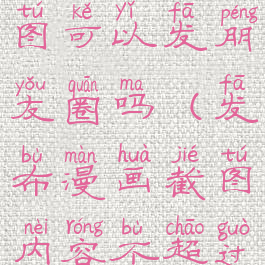 tú kě yǐ fā péng
图可以发朋
yǒu quān ma fā
友圈吗（发
bù màn huà jié tú
布漫画截图
nèi róng bù chāo guò
内容不超过